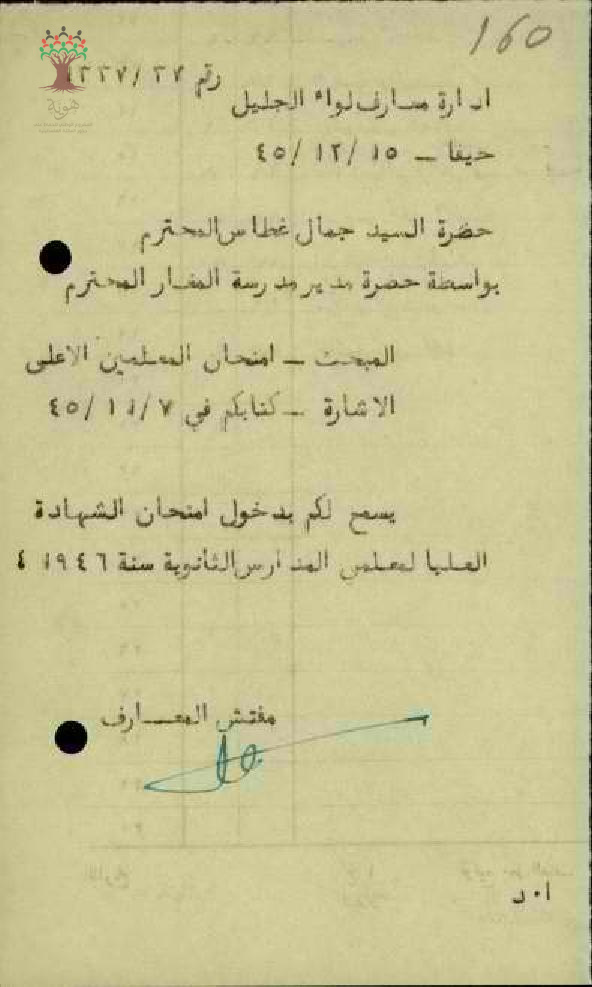 160
رقم ٢٧/ ١٢٢٧
ادارة معارف لواء الجليل
حيفا – ١٥/ ١٢/ ٤٥
حضرة السيد جمال غطاس المحترم
بواسطة حضرة مدير مدرسة المغار المحترم
المبحث – امتحان المعلمين الاعلى
الاشارة – كتابكم في ٧/ ١١/ ٤٥
يسمح لكم بدخول امتحان الشهادة
العليا لمعلمي المدارس الثانوية سنة ١٩٤٦
مفتش المعارف
ا٠د
هوية